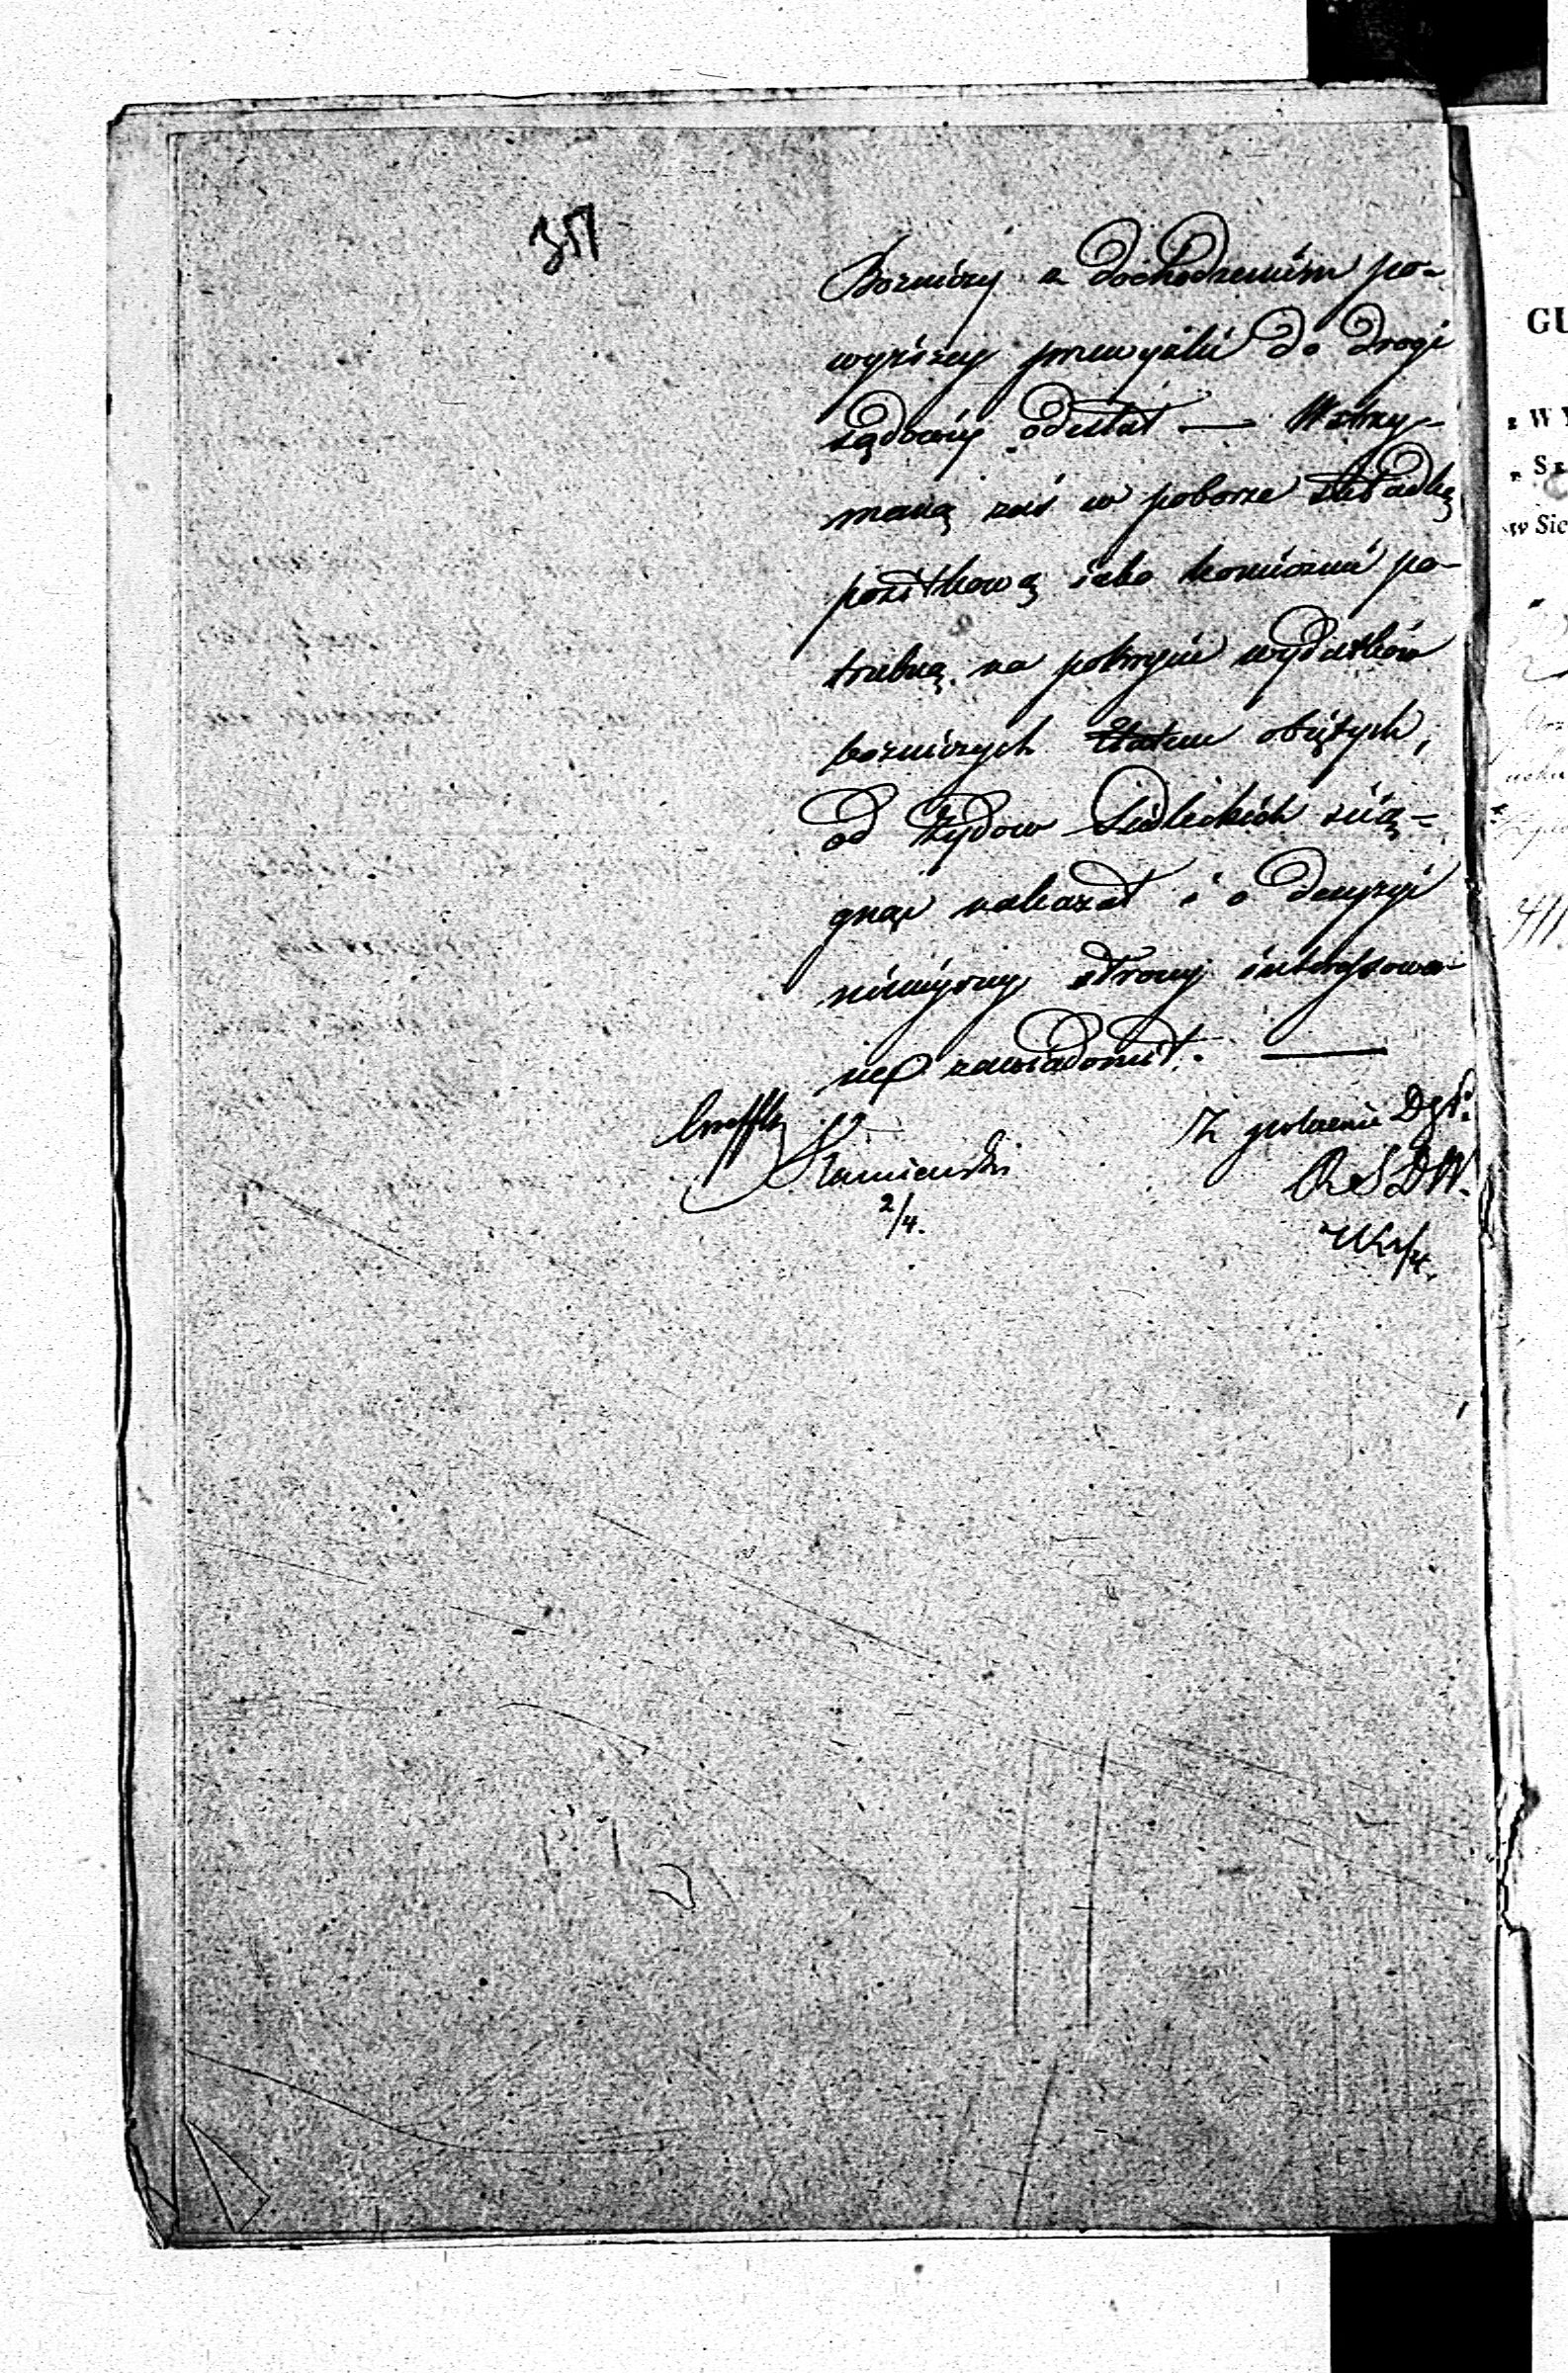 357
Bożniczy z dochodzeniem po-
wyższey przewyżki do drogi
sądowey odesłał — Wstrzy-
maną zaś w poborze składkę
pożitkową iako koniecznie po-
trzebną na pokrycie wydatków
bożniczych Etatem obiętych,
od Żydow Siedleckich ścią-
gnąć nakazał i o decyzyi
ninieyszey strony interessowa-
ne zawiadomił. —
Kamieński
2/4.
Z polecenia
GU
W
S
w Sie